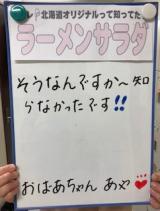 北海道オリジナルって知ってた
ラーメンサラダ
そうなんですか〜知
らなかったです!!
おばあちゃん あや❤